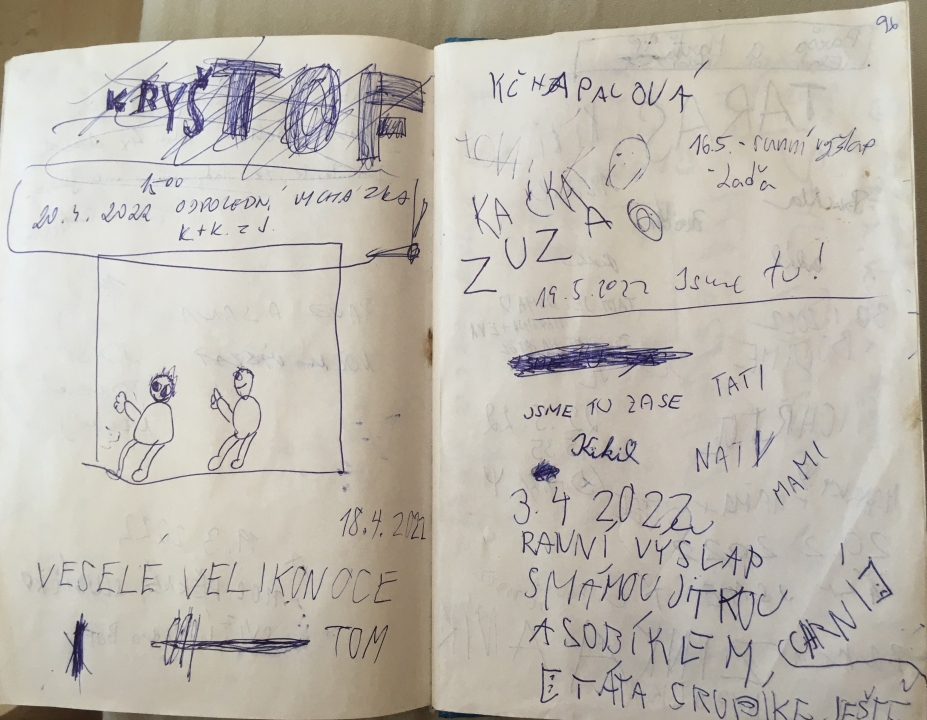 KRYŠTOF
15 00
20.4. 2022 ODPOLEDNÍ VYCHÁZKA
K+K. z J.
18.4.2022
VESELE VELIKONOCE
TOM
96
KČHAPALOVÁ
16.5. - ranní výšlap
- Laďa
KAČKA
ZUZA
19.5.2022 Jsme tu!
JSME TU ZASE
TATI
Kikil
NATY
MAMI
3.4 2022
RANNÍ VÝŠLAP
S MÁMOU JITKOU
A SOBÍKEM
TÁTA
JEŠTĚ